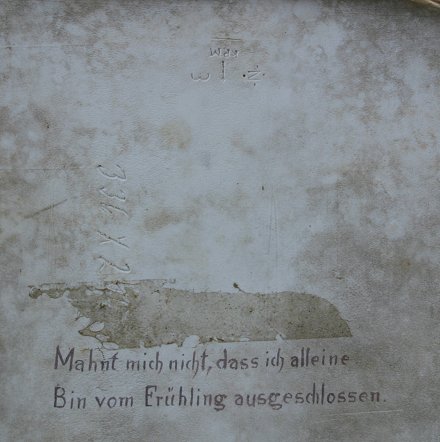 Mahnt mich nicht, dass ich alleine
Bin vom Frühling ausgeschlossen.